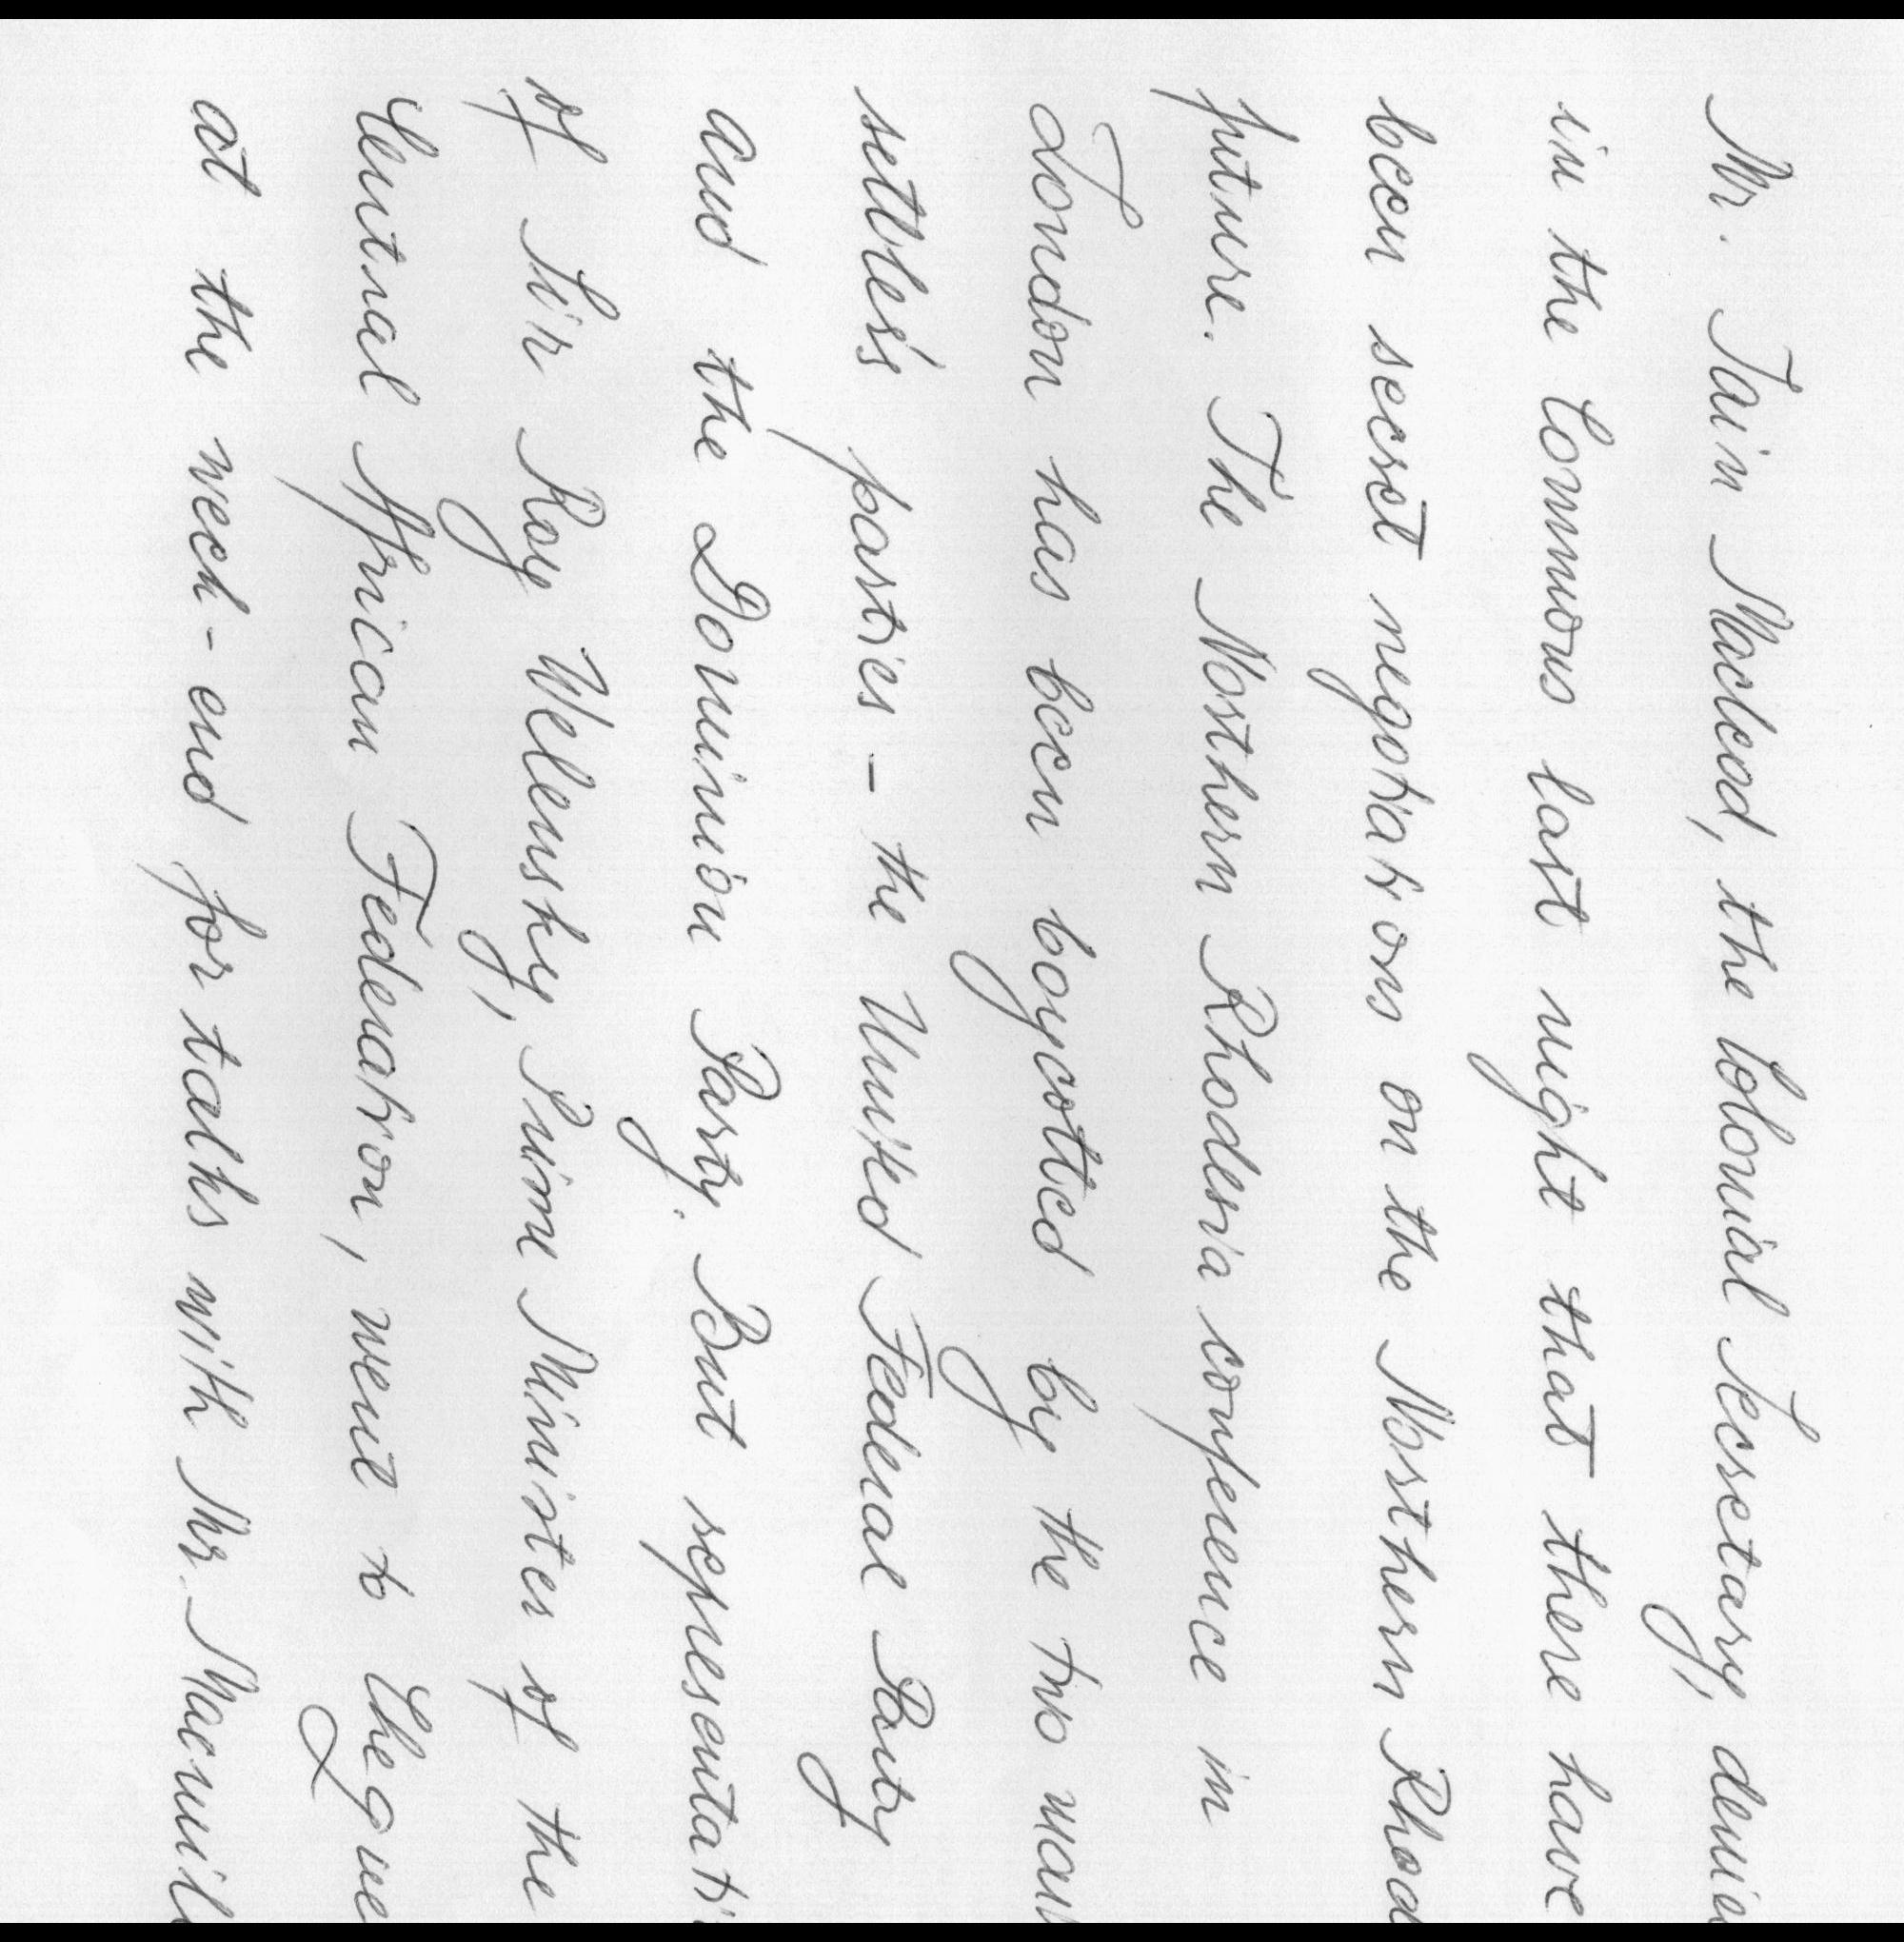 Mr. Iain Macleod, the Colonial Secretary, denie
in the Commons last night that there have
been secret negotiations on the Northern Rhod
future. The Northern Rhodesia conference in
London has been boycotted by the two mai
settlers' parties - the United Federal Party
and the Dominion Party. But representati
of Sir Roy Welensky, Prime Minister of the
Central African Federation, went to Cheque
at the week-end for talks with Mr. Macmill